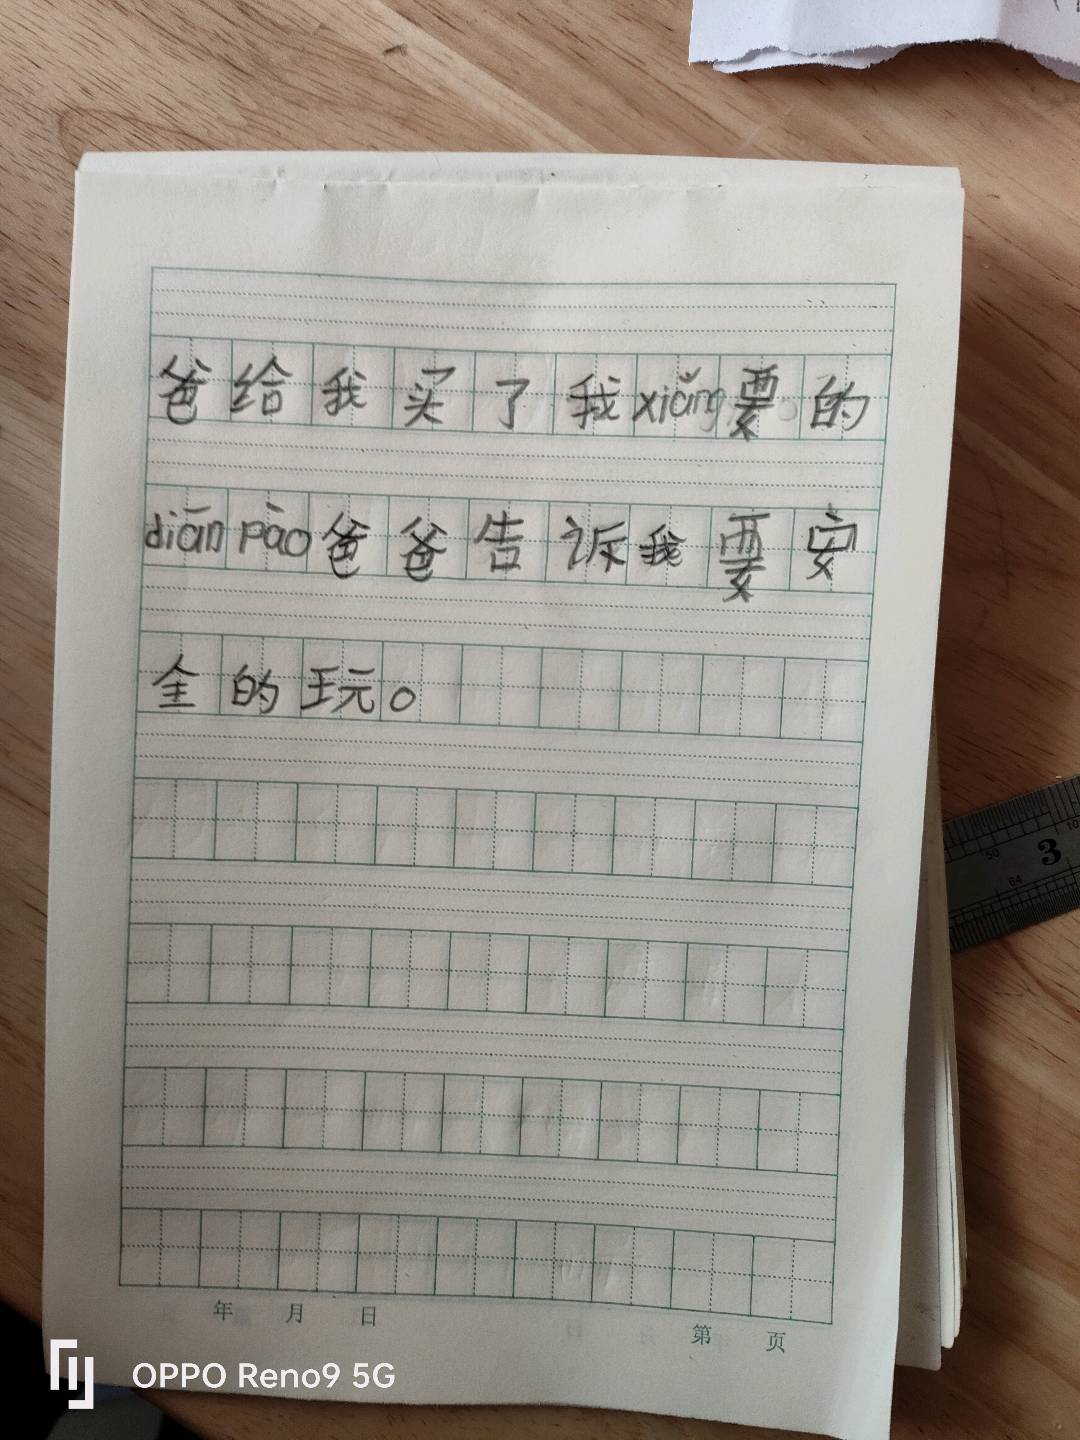 爸给我买了我xiǎng要的
diān pào爸爸告诉我要安
全的玩。
年 月 日
第 页
3
50
64
OPPO Reno9 5G